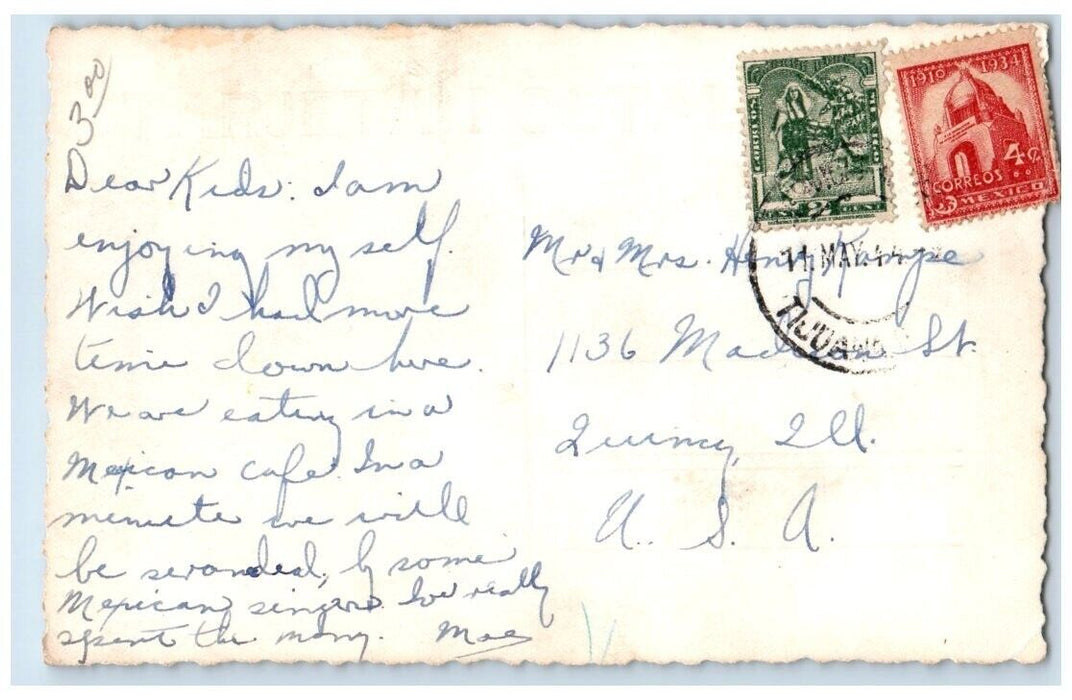 3.00
Dear Kids: I am
enjoying my self.
Wish I had more
time down here.
We are eating in a
Mexican cafe. In a
meniute we will
be seranded, by some
Mexican singers. We really
spent the mony. Mae
1910 1934
4¢
CORREOS
MEXICO
2
11. MAY. 44
TIJUANA
Mr & Mrs. Henry Kampe
1136 Madison St.
Quincy, Ill.
U. S. A.